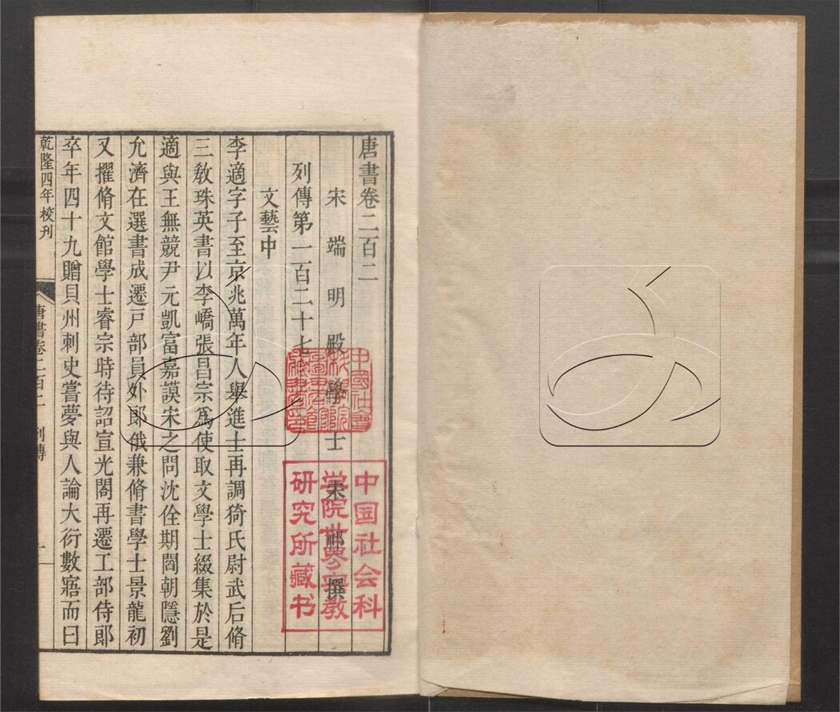 唐書卷二百二
宋端明殿學士宋祁撰
列傳第一百二十七
文藝中
李適字子至京兆萬年人舉進士再調猗氏尉武后脩
三教珠英書以李嶠張昌宗爲使取文學士綴集於是
適與王無競尹元凱富嘉謨宋之問沈佺期閻朝隱劉
允濟在選書成遷戸部員外郎俄兼脩書學士景龍初
又擢脩文館學士睿宗時待詔宣光閣再遷工部侍郎
卒年四十九贈貝州刺史嘗夢與人論大衍數寤而曰
乾隆四年校刊
唐書卷二百二 列傳 一
中国社会科
学院世界宗教
研究所藏书